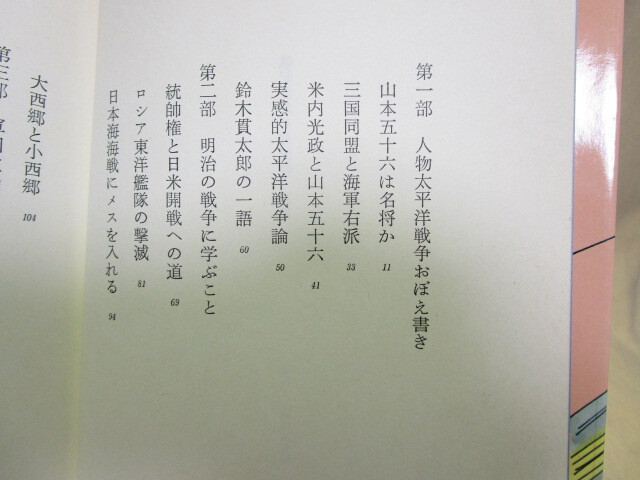 第一部 人物太平洋戦争おぼえ書き
山本五十六は名将か 11
三国同盟と海軍右派 33
米内光政と山本五十六 41
実感的太平洋戦争論 50
鈴木貫太郎の一語 60
第二部 明治の戦争に学ぶこと
統帥権と日米開戦への道 69
ロシア東洋艦隊の撃滅 81
日本海海戦にメスを入れる 94
大西郷と小西郷 104
第三部